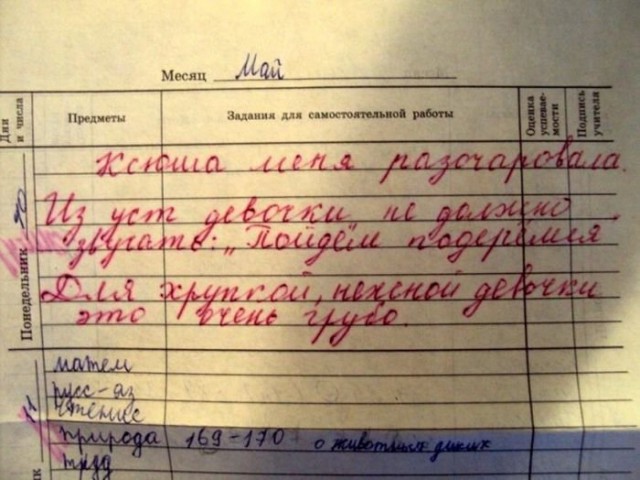 Месяц Май
Дни и числа
Предметы
Задания для самостоятельной работы
Оценка успевае-мости
Подпись учителя
Понедельник
Ксюша меня разочаровала.
Из уст девочки не должно
звучать: „Пойдём подерёмся".
Для хрупкой, нежной девочки
это очень грубо.
11
матем
русс-яз
чтение
природа 169-170 о животных диких
труд
ик